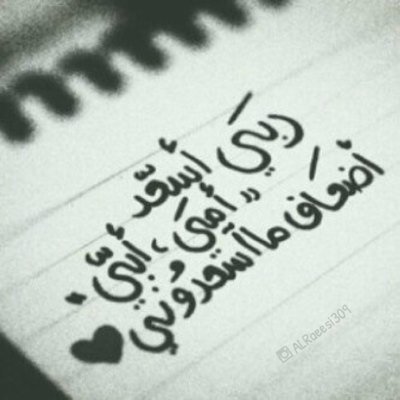 ربي أسعد
"أمي، أبي"
أضعاف ما أسعدوني
ALRaeesi309